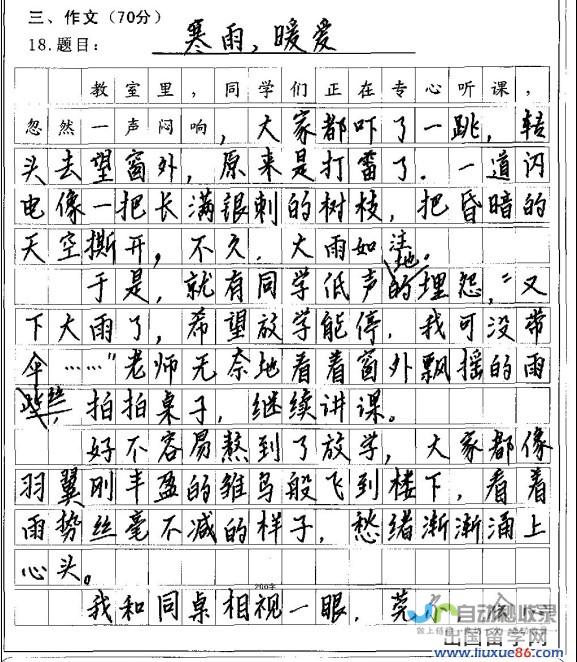 三、作文（70分）
18.题目：寒雨，暖爱
教室里，同学们正在专心听课，
忽然一声闷响，大家都吓了一跳，转
头去望窗外，原来是打雷了。一道闪
电像一把长满银刺的树枝，把昏暗的
天空撕开，不久，大雨如注。
地
于是，就有同学低声的埋怨，“又
下大雨了，希望放学能停，我可没带
伞……”老师无奈地看着窗外飘摇的雨
丝，拍拍桌子，继续讲课。
好不容易熬到了放学，大家都像
羽翼刚丰盈的雏鸟般飞到楼下，看着
雨势丝毫不减的样子，愁绪渐渐涌上
心头。
200字
我和同桌相视一眼，莞
自动秒收录
出国留学网
www.liuxue86.com